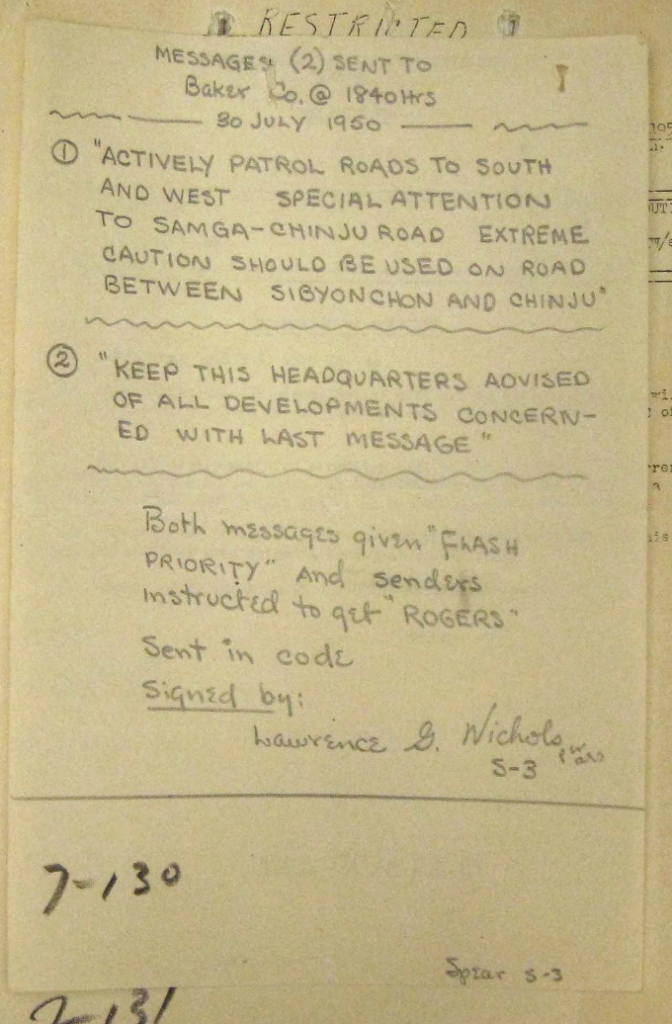 RESTRICTED
MESSAGES (2) SENT TO
Baker Co. @ 1840Hrs
30 JULY 1950
① "ACTIVELY PATROL ROADS TO SOUTH
AND WEST SPECIAL ATTENTION
TO SAMGA-CHINJU ROAD EXTREME
CAUTION SHOULD BE USED ON ROAD
BETWEEN SIBYONCHON AND CHINJU"
② "KEEP THIS HEADQUARTERS ADVISED
OF ALL DEVELOPMENTS CONCERN-
ED WITH LAST MESSAGE"
Both messages given "FLASH
PRIORITY" and senders
instructed to get "ROGERS"
Sent in code
Signed by:
Lawrence G. Nichols
S-3
7-130
Spear S-3
7-131